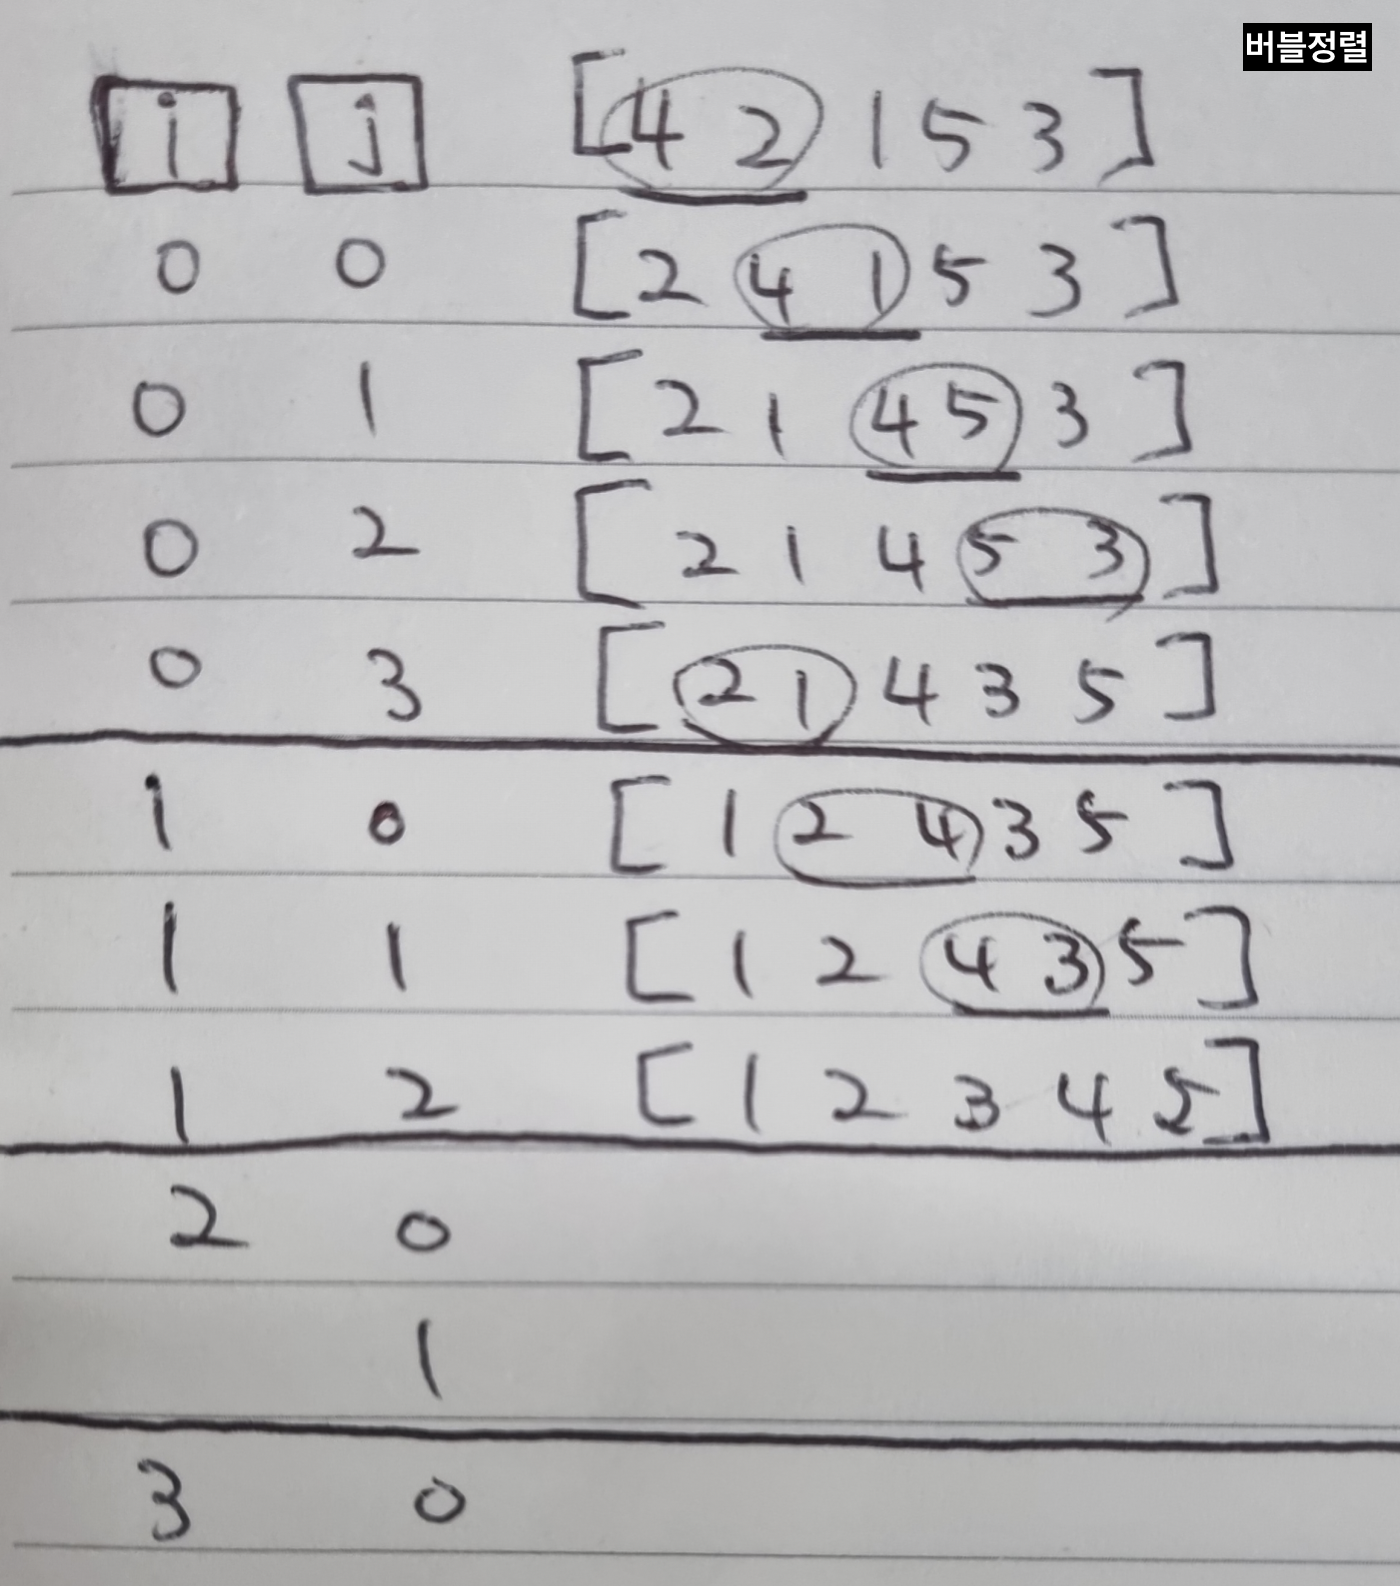 버블정렬
i j [4 2 1 5 3]
0 0 [2 4 1 5 3]
0 1 [2 1 4 5 3]
0 2 [2 1 4 5 3]
0 3 [2 1 4 3 5]
1 0 [1 2 4 3 5]
1 1 [1 2 4 3 5]
1 2 [1 2 3 4 5]
2 0
1
3 0